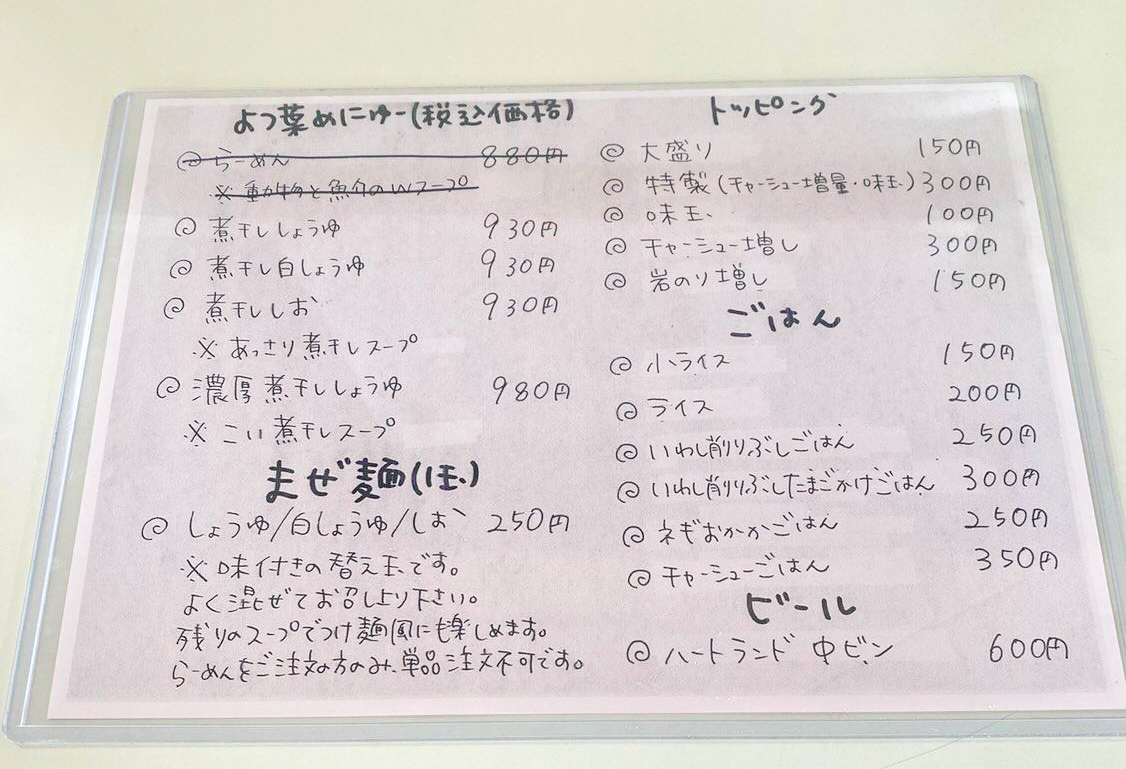 よつ葉めにゅー(税込価格)
らーめん 880円
※動物と魚介のWスープ
煮干ししょうゆ 930円
煮干し白しょうゆ 930円
煮干ししお 930円
※あっさり煮干しスープ
濃厚煮干ししょうゆ 980円
※こい煮干しスープ
まぜ麺(1玉)
しょうゆ/白しょうゆ/しお 250円
※味付きの替え玉です。
よく混ぜてお召し上り下さい。
残りのスープでつけ麺風にも楽しめます。
らーめんをご注文の方のみ、単品注文不可です。
トッピング
大盛り 150円
特製(チャーシュー増量・味玉) 300円
味玉 100円
チャーシュー増し 300円
岩のり増し 150円
ごはん
小ライス 150円
ライス 200円
いわし削りぶしごはん 250円
いわし削りぶしたまごかけごはん 300円
ネギおかかごはん 250円
チャーシューごはん 350円
ビール
ハートランド 中ビン 600円